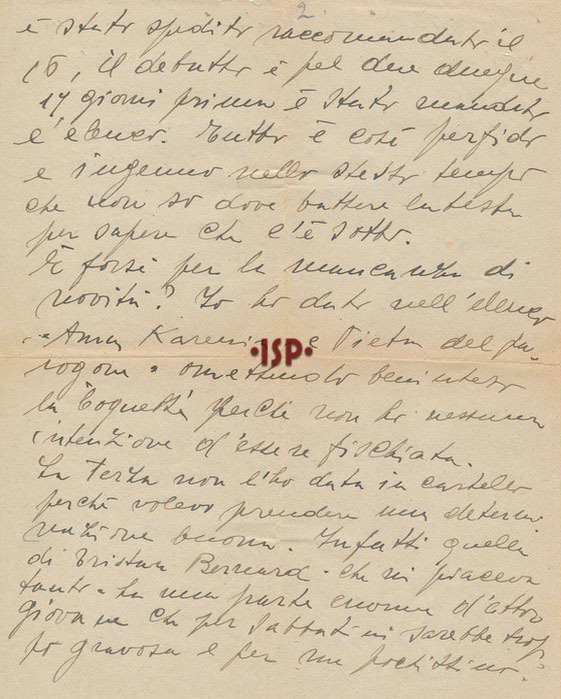 2
è stato spedito raccomandato il
16, il debutto è pel due dunque
17 giorni prima è stato mandato
l'elenco. Tutto è così perfido
e ingenuo nello stesso tempo
che non so dove battere la testa
per sapere che c'è sotto.
È forse per la mancanza di
novità? Io ho dato nell'elenco
"Anna Kareni e Pietra del pa-
ragone" omettendo beninteso
la Coquette perchè non ho nessuna
intenzione d'essere fischiata.
La Terza non l'ho data in cartello
perchè volevo prendere una determi-
nazione buona. Infatti quella
di Tristan Bernard - che mi piaceva
tanto - ha una parte enorme d'attor
giovane che per Sabbatini sarebbe trop-
po gravosa e per me pochissimo.
·ISP·